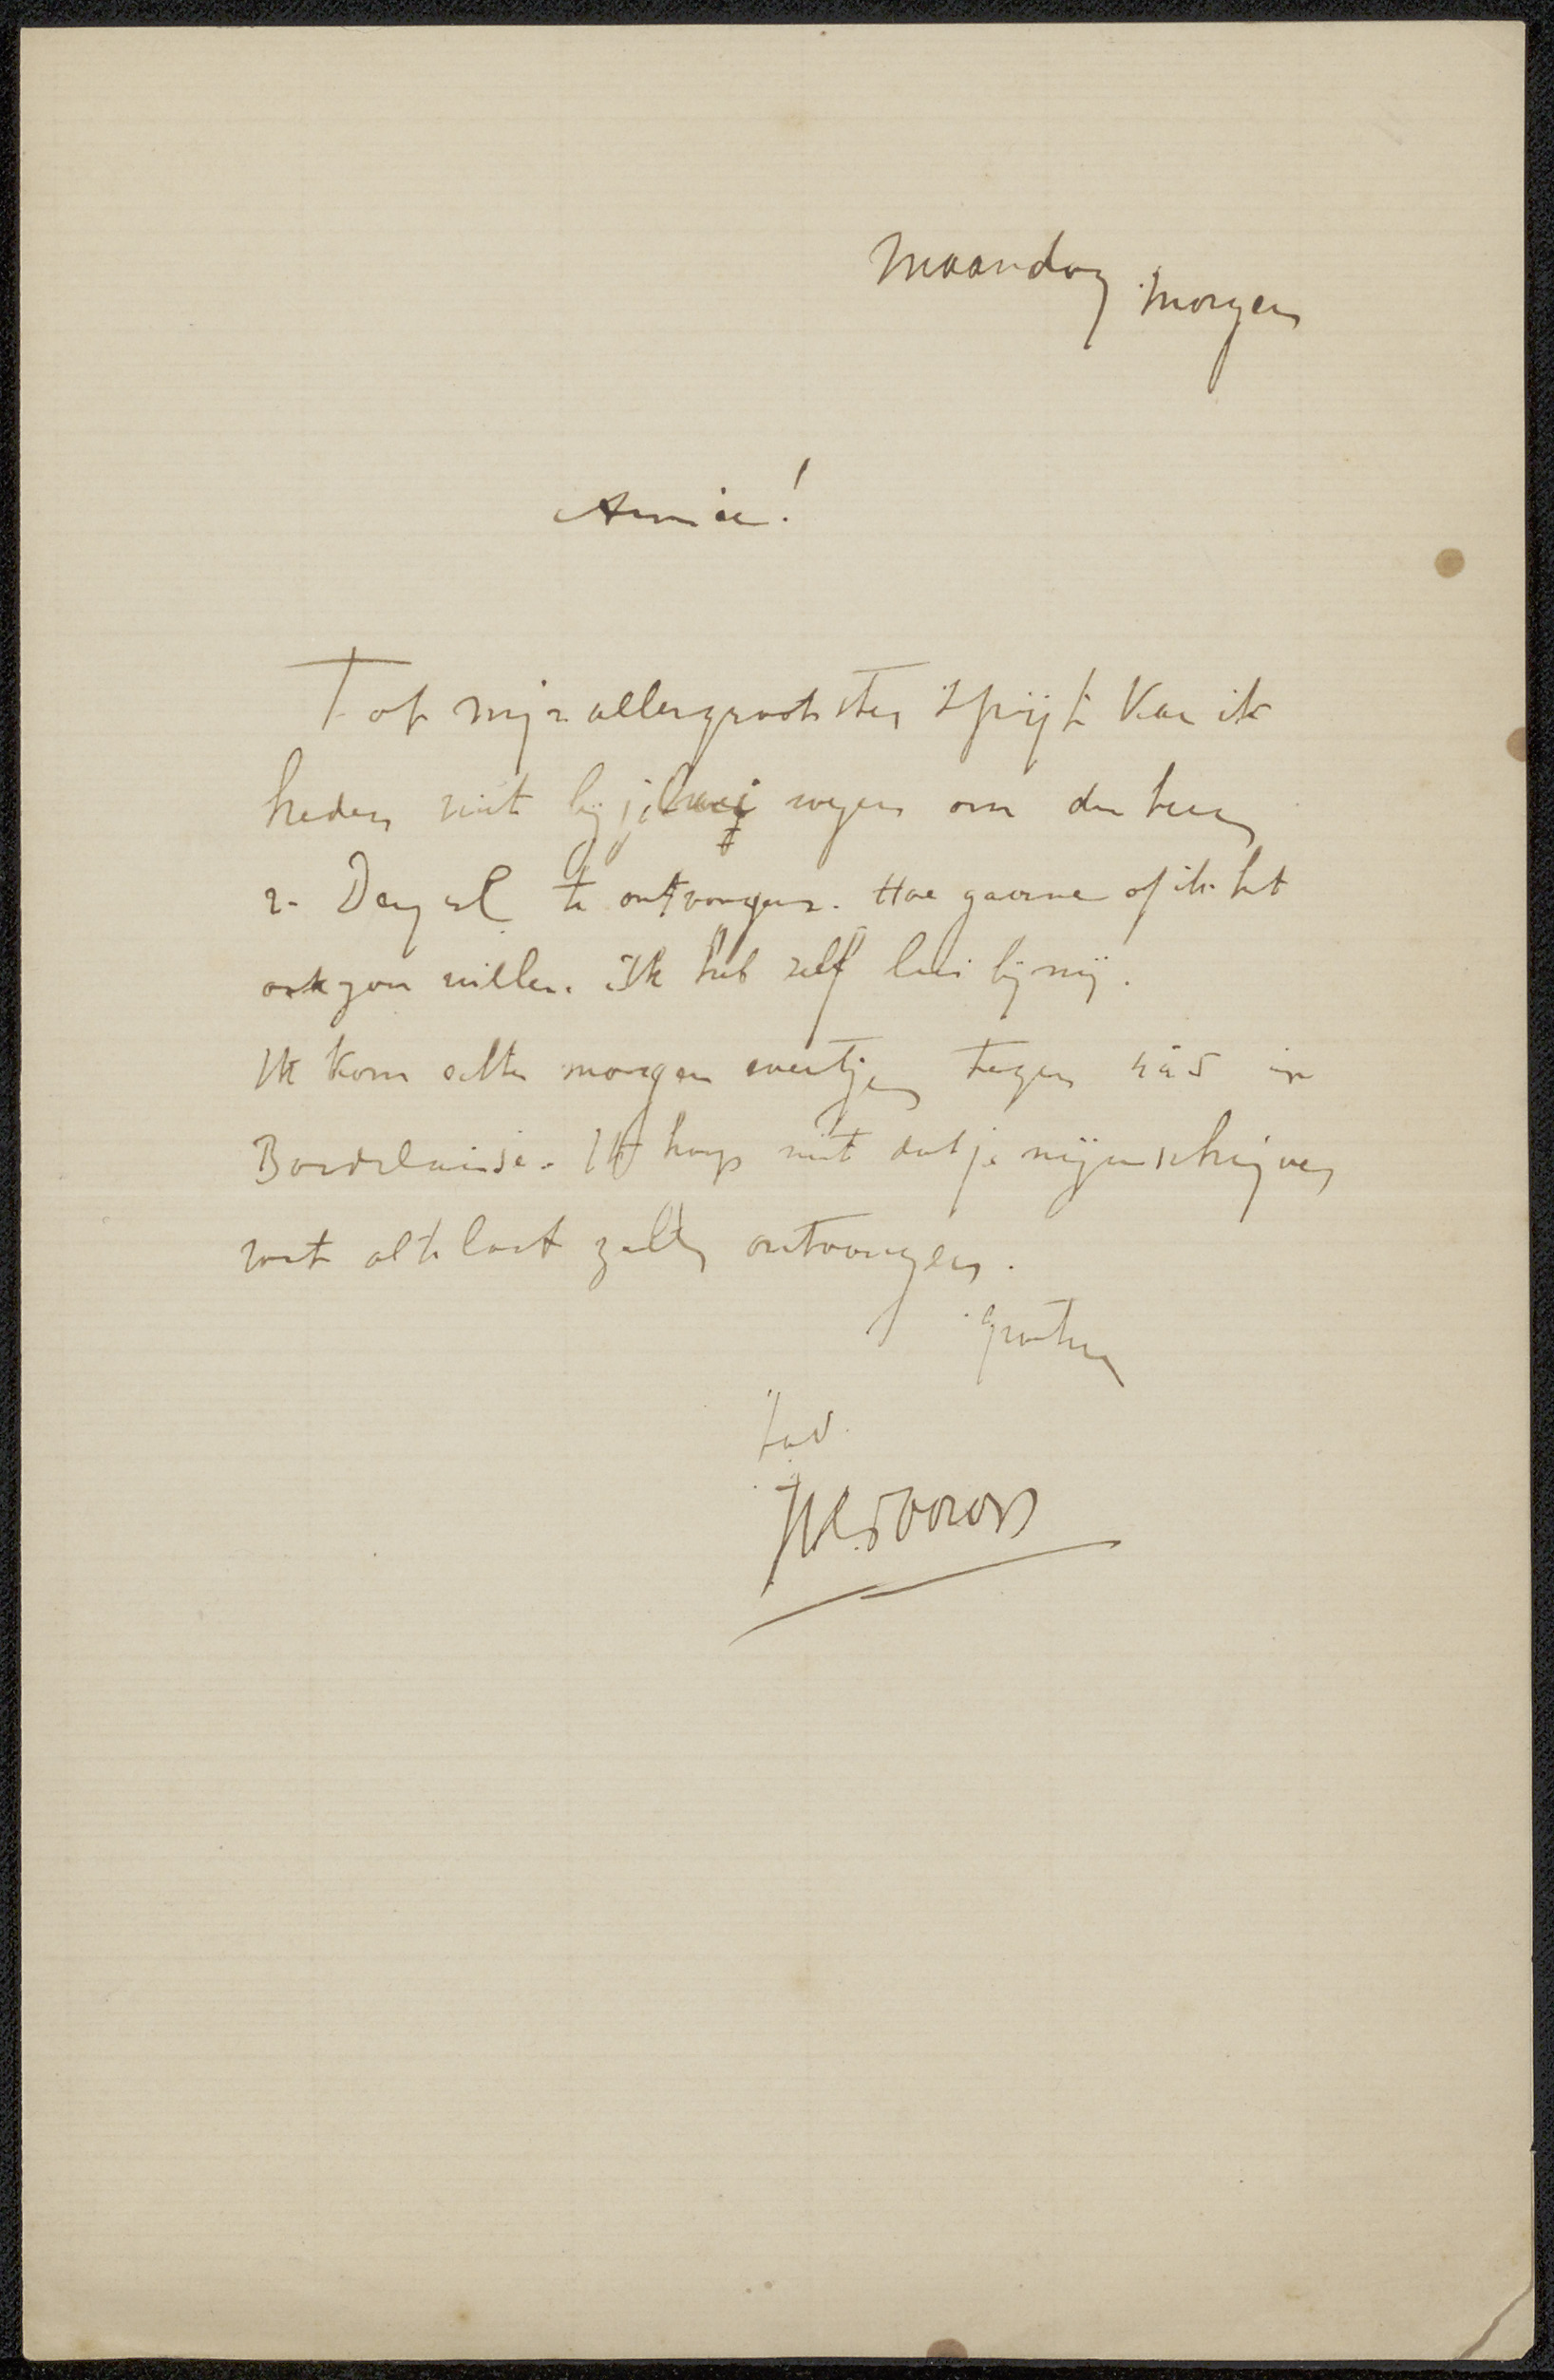 Maandag morgen
Amice!
Tot mijn allergrootsten spijt kan ik
heden niet bij je wezen om den heer
v. Deyssel te ontvangen. Hoe gaarne of ik het
ook zou willen. Ik heb zelf lui bij mij.
Ik kom echter morgen eventjes tegen 4 à 5 in
Bordelaise. Ik hoop niet dat je mijn schrijven
niet al te laat zult ontvangen.
groeten
tàv